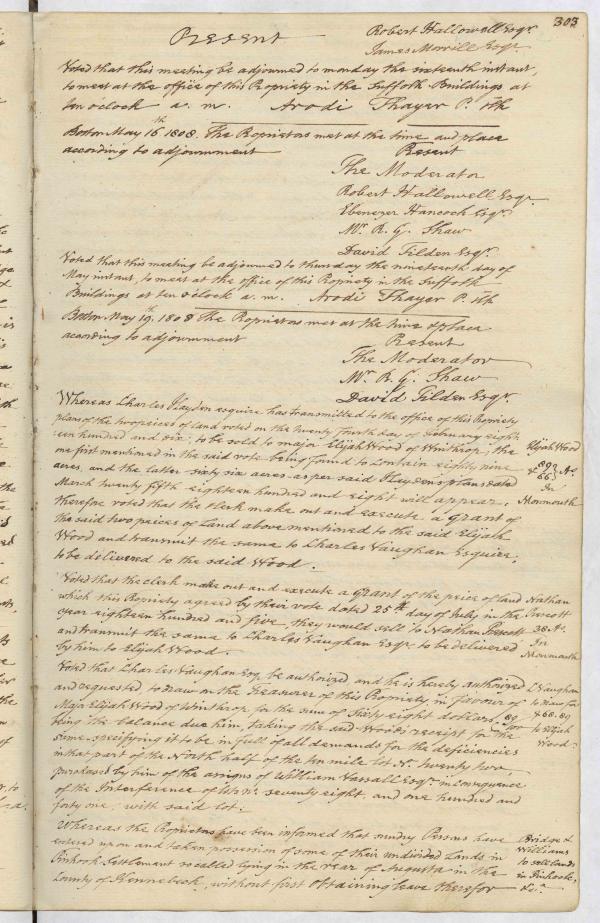 303
Present
Robert Hallowell Esqr.
James Morrill Esqr
Voted that this meeting be adjourned to monday the sixteenth instant,
to meet at the office of this Propriety in the Suffolk Buildings at
ten oclock a. m. Arodi Thayer P. Clk
Boston May 16th 1808. The Proprietors met at the time and place
according to adjournment
Present
The Moderator
Robert Hallowell Esqr.
Ebenezer Hancock Esqr.
Mr. R. G. Shaw
David Tilden Esqr.
Voted that this meeting be adjourned to thursday the nineteenth day of
May instant, to meet at the office of this Propriety in the Suffolk
Buildings at ten oclock a. m. Arodi Thayer P. Clk
Boston May 19th. 1808 The Proprietors met at the time & place
according to adjournment
Present
The Moderator
Mr. R. G. Shaw
David Tilden Esqr.
Whereas Charles Hayden esquire has transmitted to the office of this Propriety
plans of the two peices of land voted on the twenty fourth day of February eigh-
teen hundred and six, to be sold to major Elijah Wood of Winthrop, the
one first mentioned in the said vote being found to contain eighty nine
acres, and the latter sixty six acres as per said Hayden's plans dated
March twenty fifth eighteen hundred and eight will appear,
therefore voted that the clerk make out and execute a grant of
the said two peices of Land above mentioned to the said Elijah
Wood and transmit the same to Charles Vaughan Esquire,
to be delivered to the said Wood.
Elijah Wood
89
& 66 As.
In
Monmouth
Voted that the clerk make out and execute a grant of the peice of land
which this Propriety agreed by their vote dated 25th day of July in the
year eighteen hundred and five, they would sell to Nathan Prescott
and transmit the same to Charles Vaughan Esqr. to be delivered
by him to Elijah Wood.
Nathan
Prescott
38 As.
In
Monmouth
Voted that Charles Vaughan Esq. be authorized and he is hereby authorized
and requested to draw on the Treasurer of this Propriety in favour of
Major Elijah Wood of Winthrop for the sum of Sixty eight dollars 89/100
being the balance due him, taking the said Wood's receipt for the
same, specifying it to be in full of all demands for the deficiencies
in that part of the North half of the ten mile lot No. twenty two,
purchased by him of the assigns of William Vassall Esqr. in consequence
of the Interference of seventy eight, and one hundred and
forty one, with said lot.
C. Vaughan
to draw for
$ 68.89
to Elijah
Wood
Whereas the Proprietors have been informed that sundry Persons have
entered upon and taken possession of some of their undivided Lands in
Pinhook Settlement so called lying in the rear of Augusta in the
County of Kennebeck, without first obtaining leave therefor
Bridge &
Williams
to sell lands
in Pinhook,
&ca.